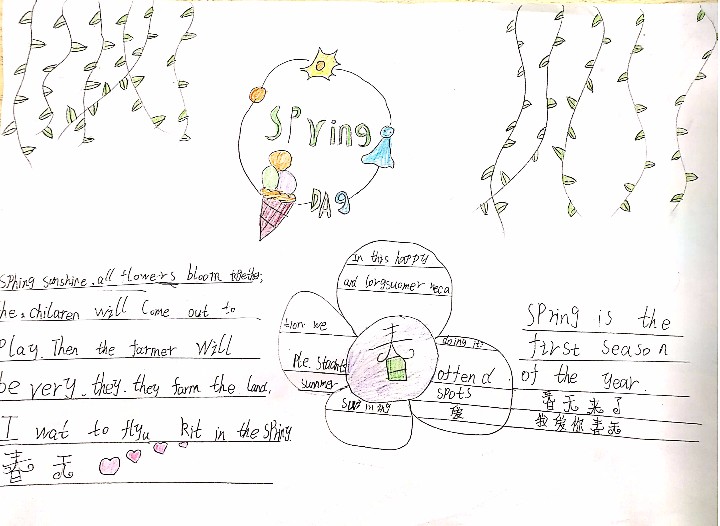 Spring
DAG
Sphing sunshine. all flowers bloom together,
he. children will Come out to
Play. Then the farmer will
be very. they. they farm the land.
I wat to flyu kit in the spring.
春 天
In this happy
and longsuomer reca
tion we
summer
doing it
offend
spots
爱
春
Spring is the
first season
of the year.
春天来了
我爱你春天